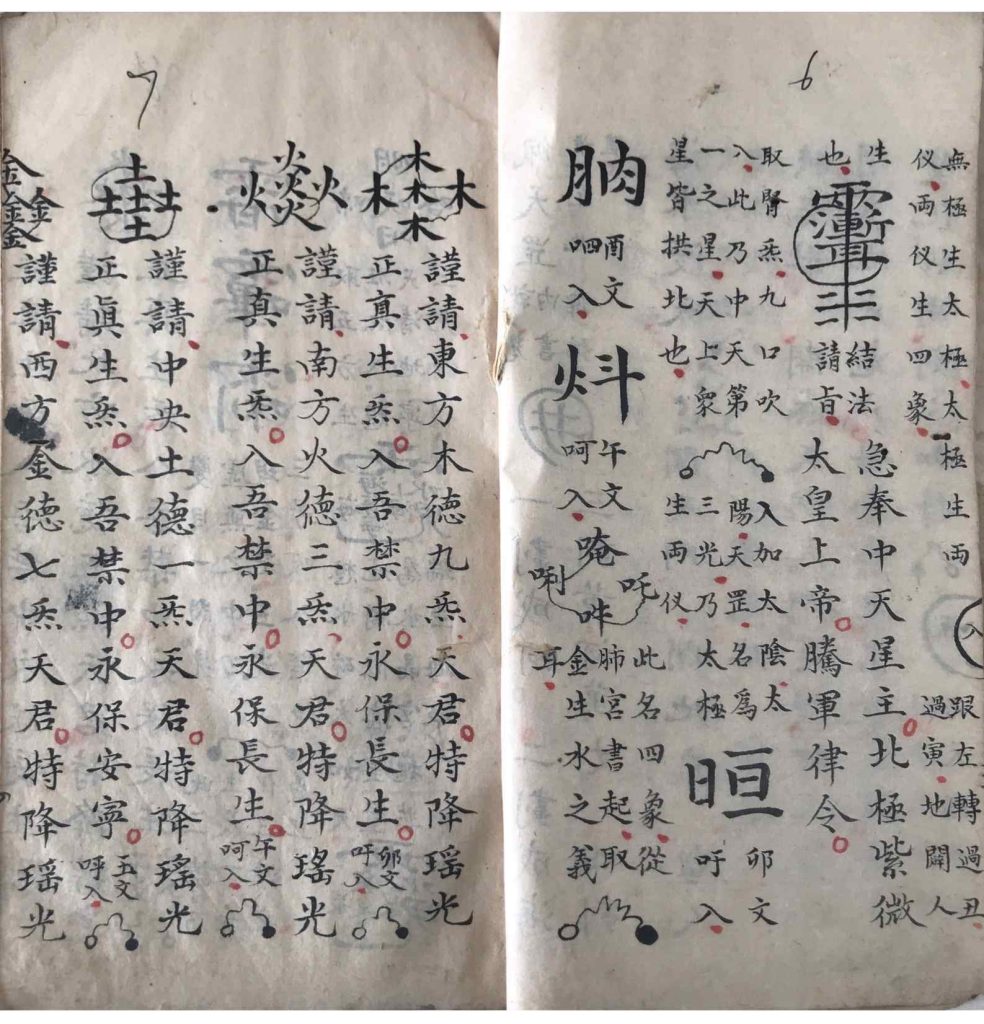 6
無極生太極太極生兩
儀兩儀生四象
跟左轉過丑
過寅地闢人
入
生
也
結法
請旨
急奉中天星主北極紫微
太皇上帝騰軍律令
取腎炁九口吹
入此乃中天第
一之星天上衆
星皆拱北也
入加太陰太
陽天罡名為
三光乃太極
生兩儀
卯文
吁入
酉文
呬入
午文
呵入
唵
吽
此名四象從
肺宮書起取
金生水之義
7
木木木木木
謹請東方木德九炁天君特降瑤光
正真生炁入吾禁中永保長生
卯文
吁入
謹請南方火德三炁天君特降瑤光
正真生炁入吾禁中永保長生
午文
呵入
土土土土土
謹請中央土德一炁天君特降瑤光
正眞生炁入吾禁中永保安寧
五文
呼入
謹請西方金德七炁天君特降瑤光